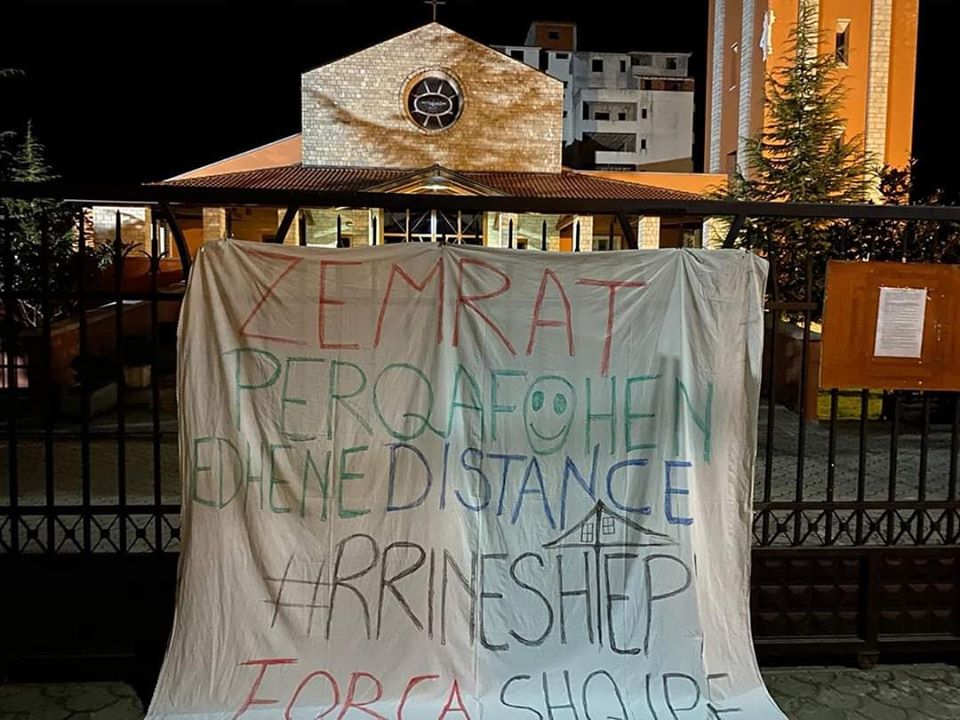 ZEMRAT
PERQAFOHEN
EDHENE DISTANCE
#RRINESHTEPI
FORCA SHQIPE